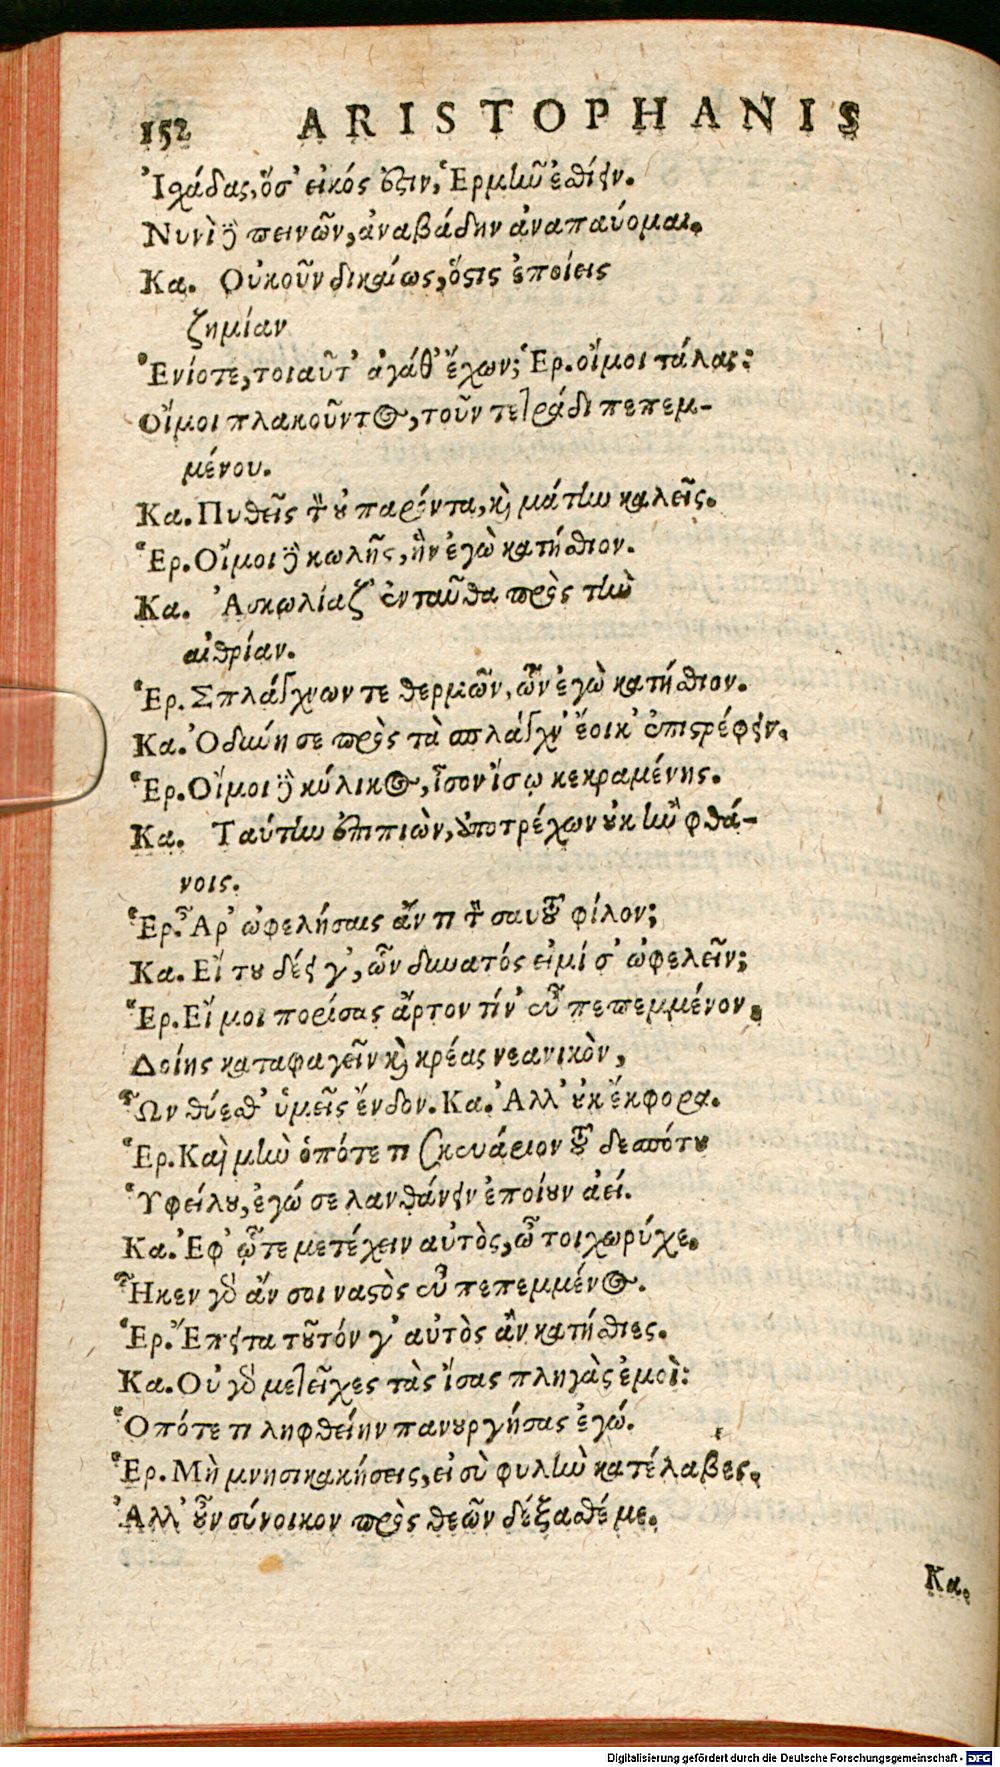 152 ARISTOPHANIS
Ἰχάδας, ὅσ' εἰκός ἐστιν, Ἑρμῆν ἐσθίειν.
Νυνὶ δὲ πεινῶν, ἀναβάδην ἀναπαύομαι.
Κα. Οὐκοῦν δικαίως, ὅστις ἐποίεις
ζημίαν
Ἐνίοτε, τοιαῦτ' ἀγάθ' ἔχων; Ἑρ. οἴμοι τάλας:
Οἴμοι πλακοῦντος, τοῦν τετράδι πεπεμ-
μένου.
Κα. Ποθεῖς τὸν οὐ παρόντα, καὶ μάτην καλεῖς.
Ἑρ. Οἴμοι δὲ κωλῆς, ἣν ἐγὼ κατήσθιον.
Κα. Ἀσκωλίαζ' ἐνταῦθα πρὸς τὴν
αἰθρίαν.
Ἑρ. Σπλάγχνων τε θερμῶν, ὧν ἐγὼ κατήσθιον.
Κα. Ὀδύνη σε πρὸς τὰ σπλάγχν' ἔοικ' ἐπιστρέφειν.
Ἑρ. Οἴμοι δὲ κύλικος, ἴσον ἴσῳ κεκραμένης.
Κα. Ταύτην ἐπιπιὼν, ἀποτρέχων οὐκ ἂν φθά-
νοις.
Ἑρ. Ἆρ' ὠφελήσαις ἄν τι τὸν σαυτοῦ φίλον;
Κα. Εἴ του δέει γ', ὧν δυνατός εἰμί σ' ὠφελεῖν;
Ἑρ. Εἴ μοι πορίσας ἄρτον τίν' εὖ πεπεμμένον,
Δοίης καταφαγεῖν καὶ κρέας νεανικὸν,
Ὧν θύεσθ' ὑμεῖς ἔνδον. Κα. Ἀλλ' οὐκ ἔκφορα.
Ἑρ. Καὶ μὴν ὁπότε τι σκευάριον τοῦ δεσπότου
Ὑφείλου, ἐγώ σε λανθάνειν ἐποίουν ἀεί.
Κα. Ἐφ' ᾧτε μετέχειν αὐτὸς, ὦ τοιχωρύχε.
Ἧκεν γὰρ ἄν σοι ναστὸς εὖ πεπεμμένος.
Ἑρ. Ἔπειτα τοῦτόν γ' αὐτὸς ἂν κατήσθιες.
Κα. Οὐ γὰρ μετεῖχες τὰς ἴσας πληγὰς ἐμοὶ:
Ὁπότε τι ληφθείην πανουργήσας ἐγώ.
Ἑρ. Μὴ μνησικακήσεις, εἰ σὺ φυλὴν κατέλαβες.
Ἀλλ' οὖν σύνοικον πρὸς θεῶν δέξασθέ με.
Κα.
Digitalisierung gefördert durch die Deutsche Forschungsgemeinschaft - DFG